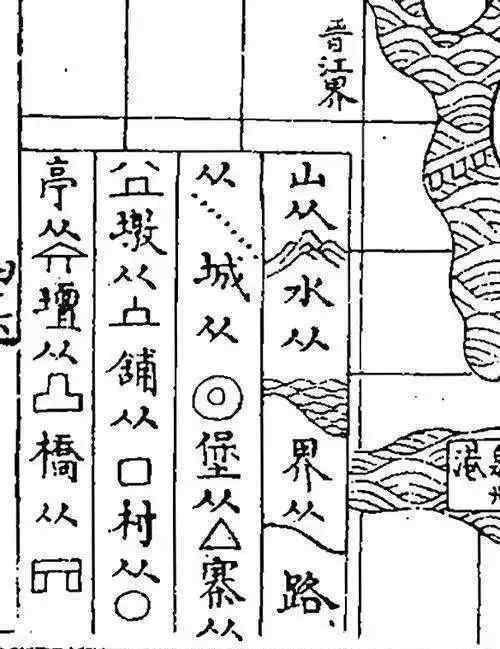 晋江界
山从
水从
界从
路
从
城从
堡从
寨从
墩从
舖从
村从
亭从
壇从
橋从
港